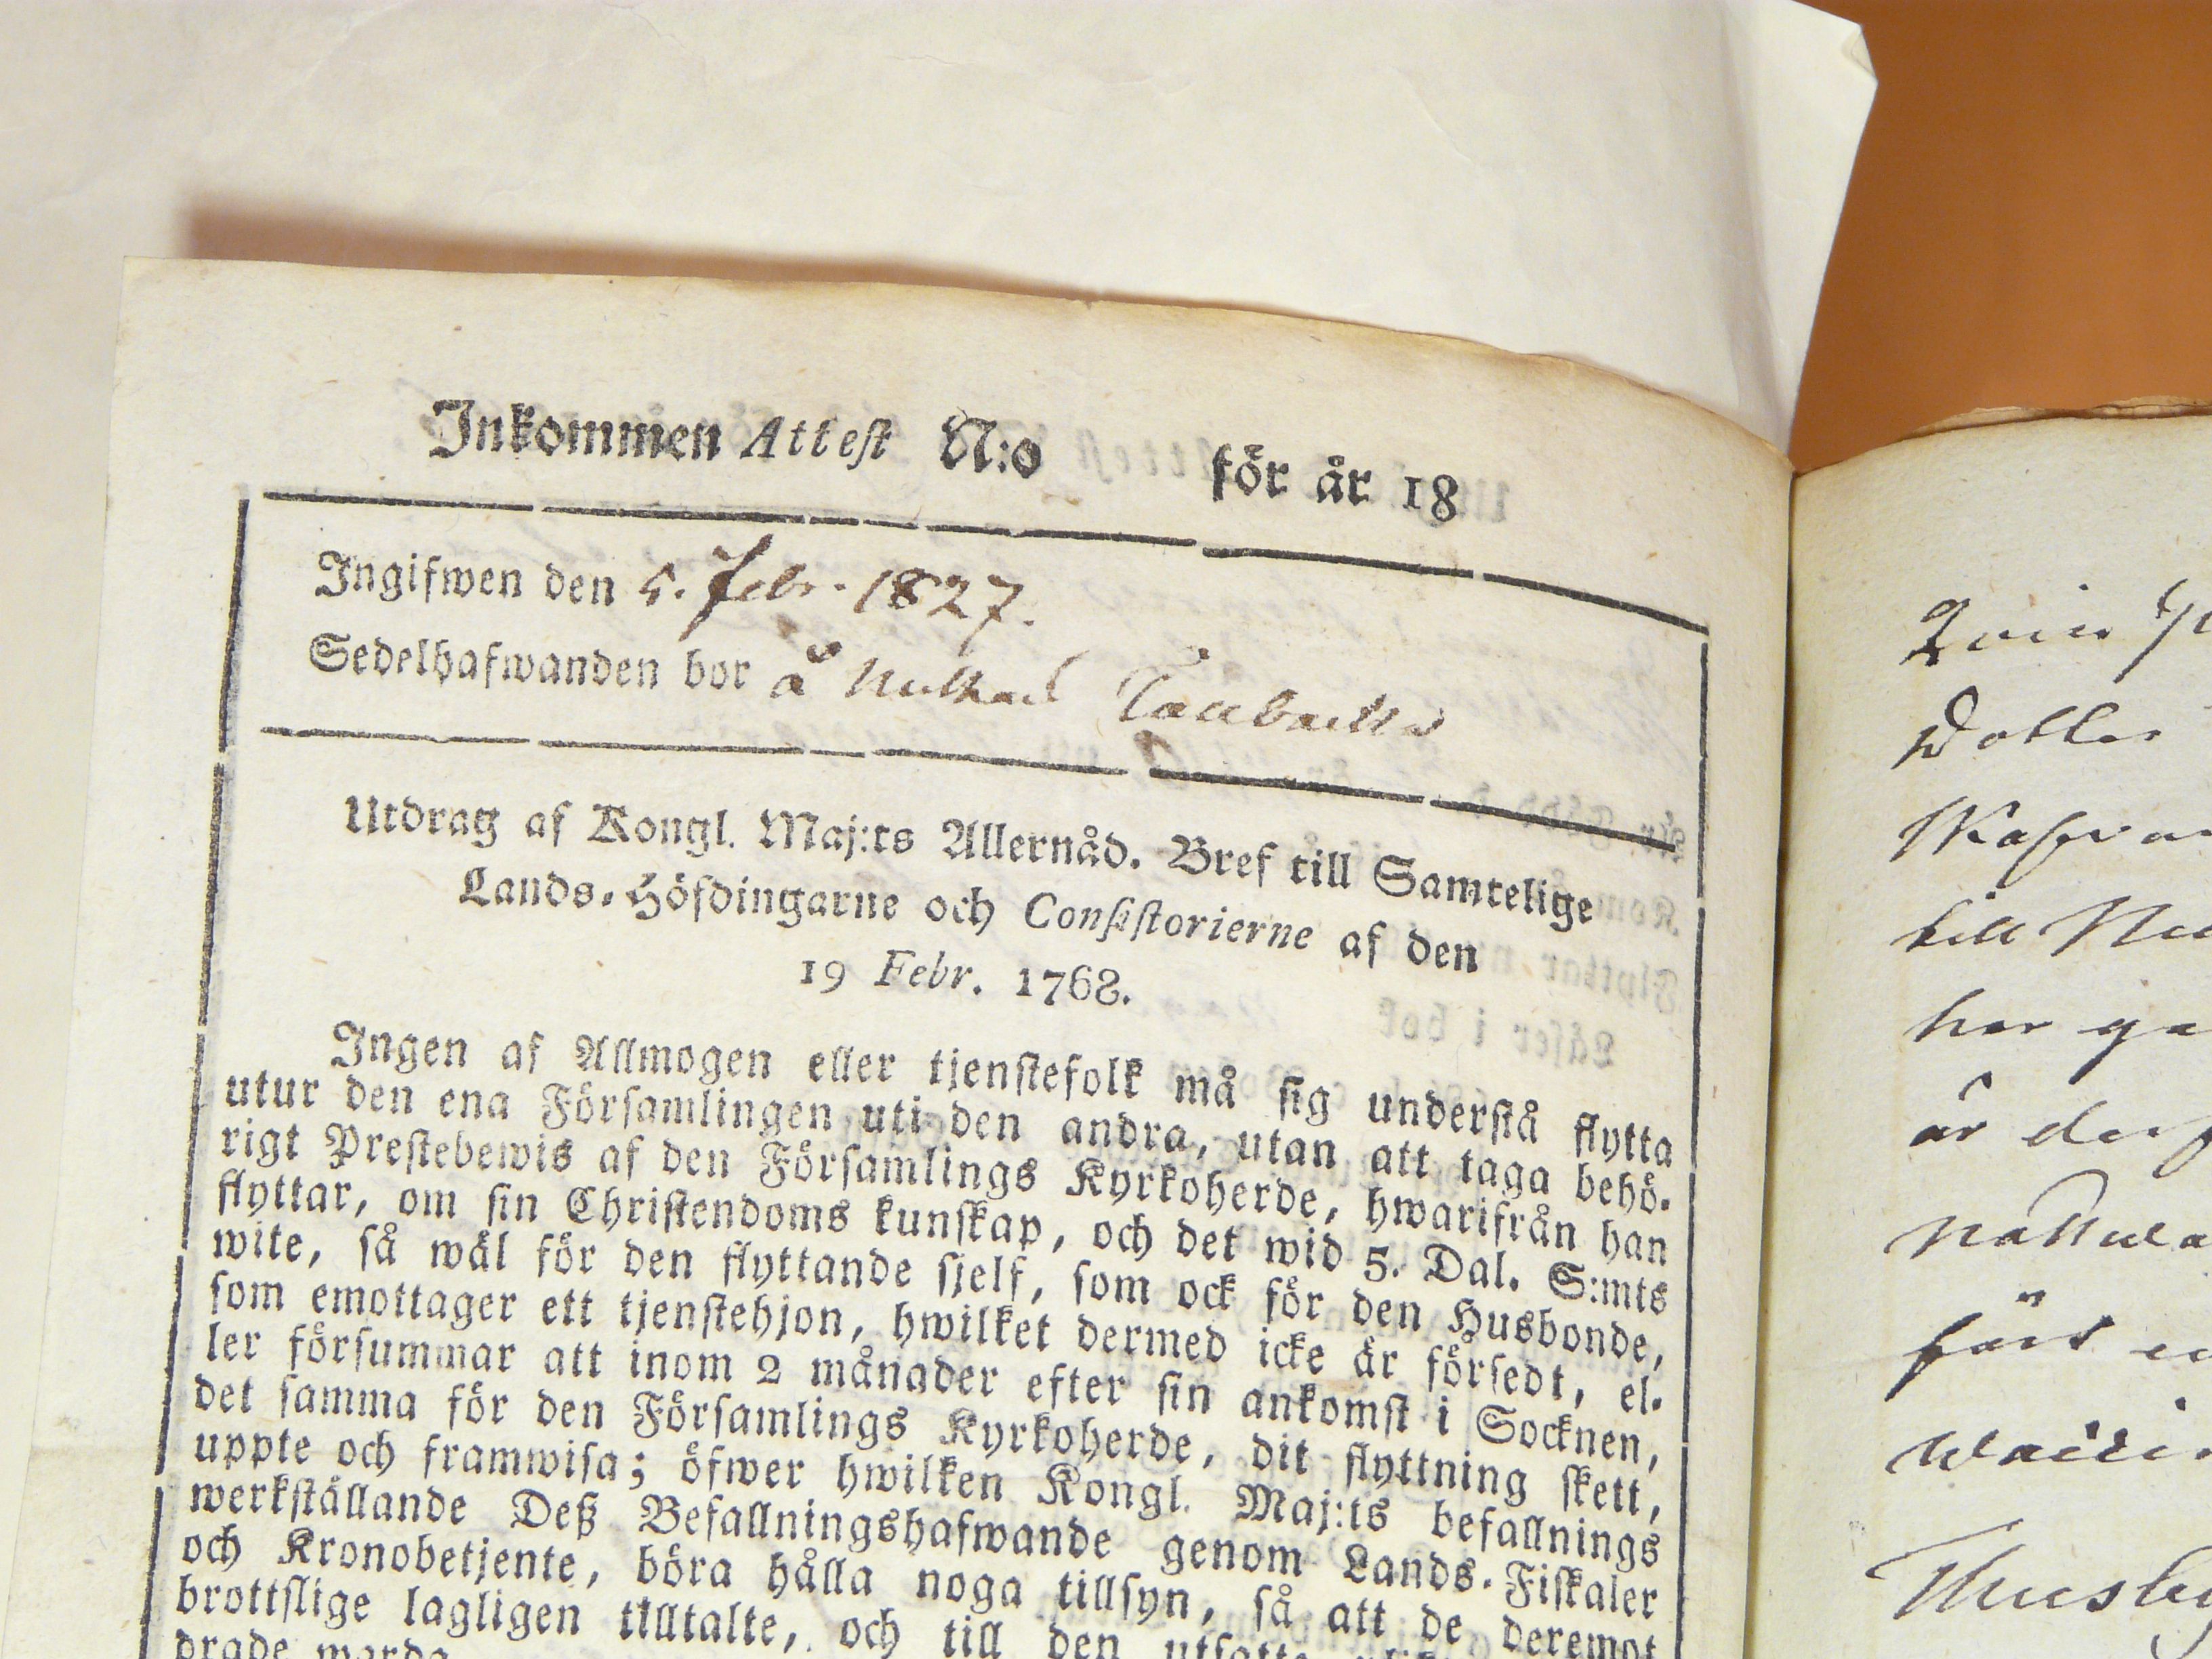 Inkommen Attest N:o för år 18
Ingifwen den 5. Febr. 1827.
Sedelhafwanden bor å
Utdrag af Kongl. Maj:ts Allernåd. Bref till Samtelige
Lands-Höfdingarne och Consistorierne af den
19 Febr. 1768.
Ingen af Allmogen eller tjenstefolk må sig understå flytta
utur den ena Församlingen uti den andra, utan att taga behö-
rigt Prestebewis af den Församlings Kyrkoherde, hwarifrån han
flyttar, om sin Christendoms kunskap, och det wid 5. Dal. S:mts
wite, så wäl för den flyttande sjelf, som ock för den Husbonde,
som emottager ett tjenstehjon, hwilket dermed icke är försedt, el-
ler försummar att inom 2 månader efter sin ankomst i Socknen,
det samma för den Församlings Kyrkoherde, dit flyttning skett,
uppte och framwisa; öfwer hwilken Kongl. Maj:ts befallnings
werkställande Deß Befallningshafwande genom Lands-Fiskaler
och Kronobetjente, böra hålla noga tillsyn, så att de deremot
brottslige lagligen tilltalte, och till den utsatte
Dotter
till
har
är